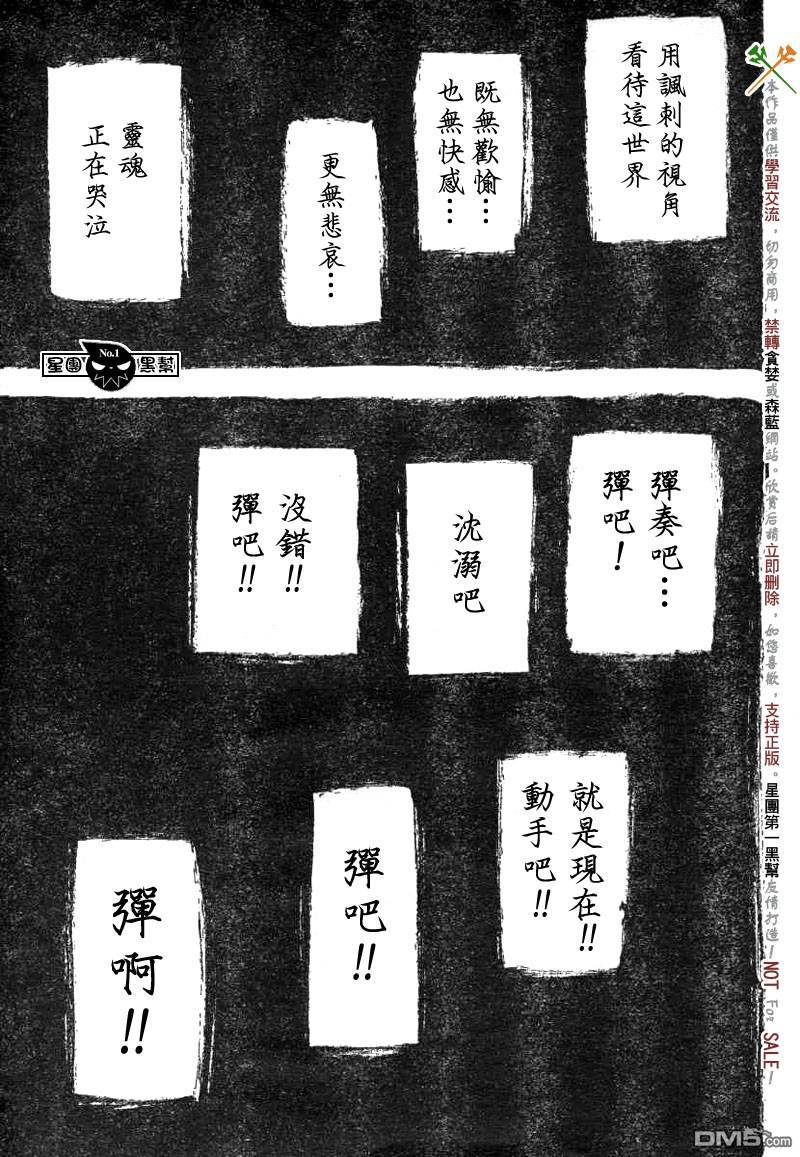 用諷刺的視角
看待這世界
既無歡愉…
也無快感…
更無悲哀…
靈魂
正在哭泣
No.1
星團黑幫
彈奏吧…
彈吧！
沈溺吧
沒錯!!
彈吧!!
就是現在!!
動手吧!!
彈吧!!
彈啊!!
本作品僅供學習交流，切勿商用，禁轉貪婪或森藍網站。欣賞后請立即刪除，如您喜歡，支持正版。星團第一黑幫友情打造—NOT For SALE—
DM5.com